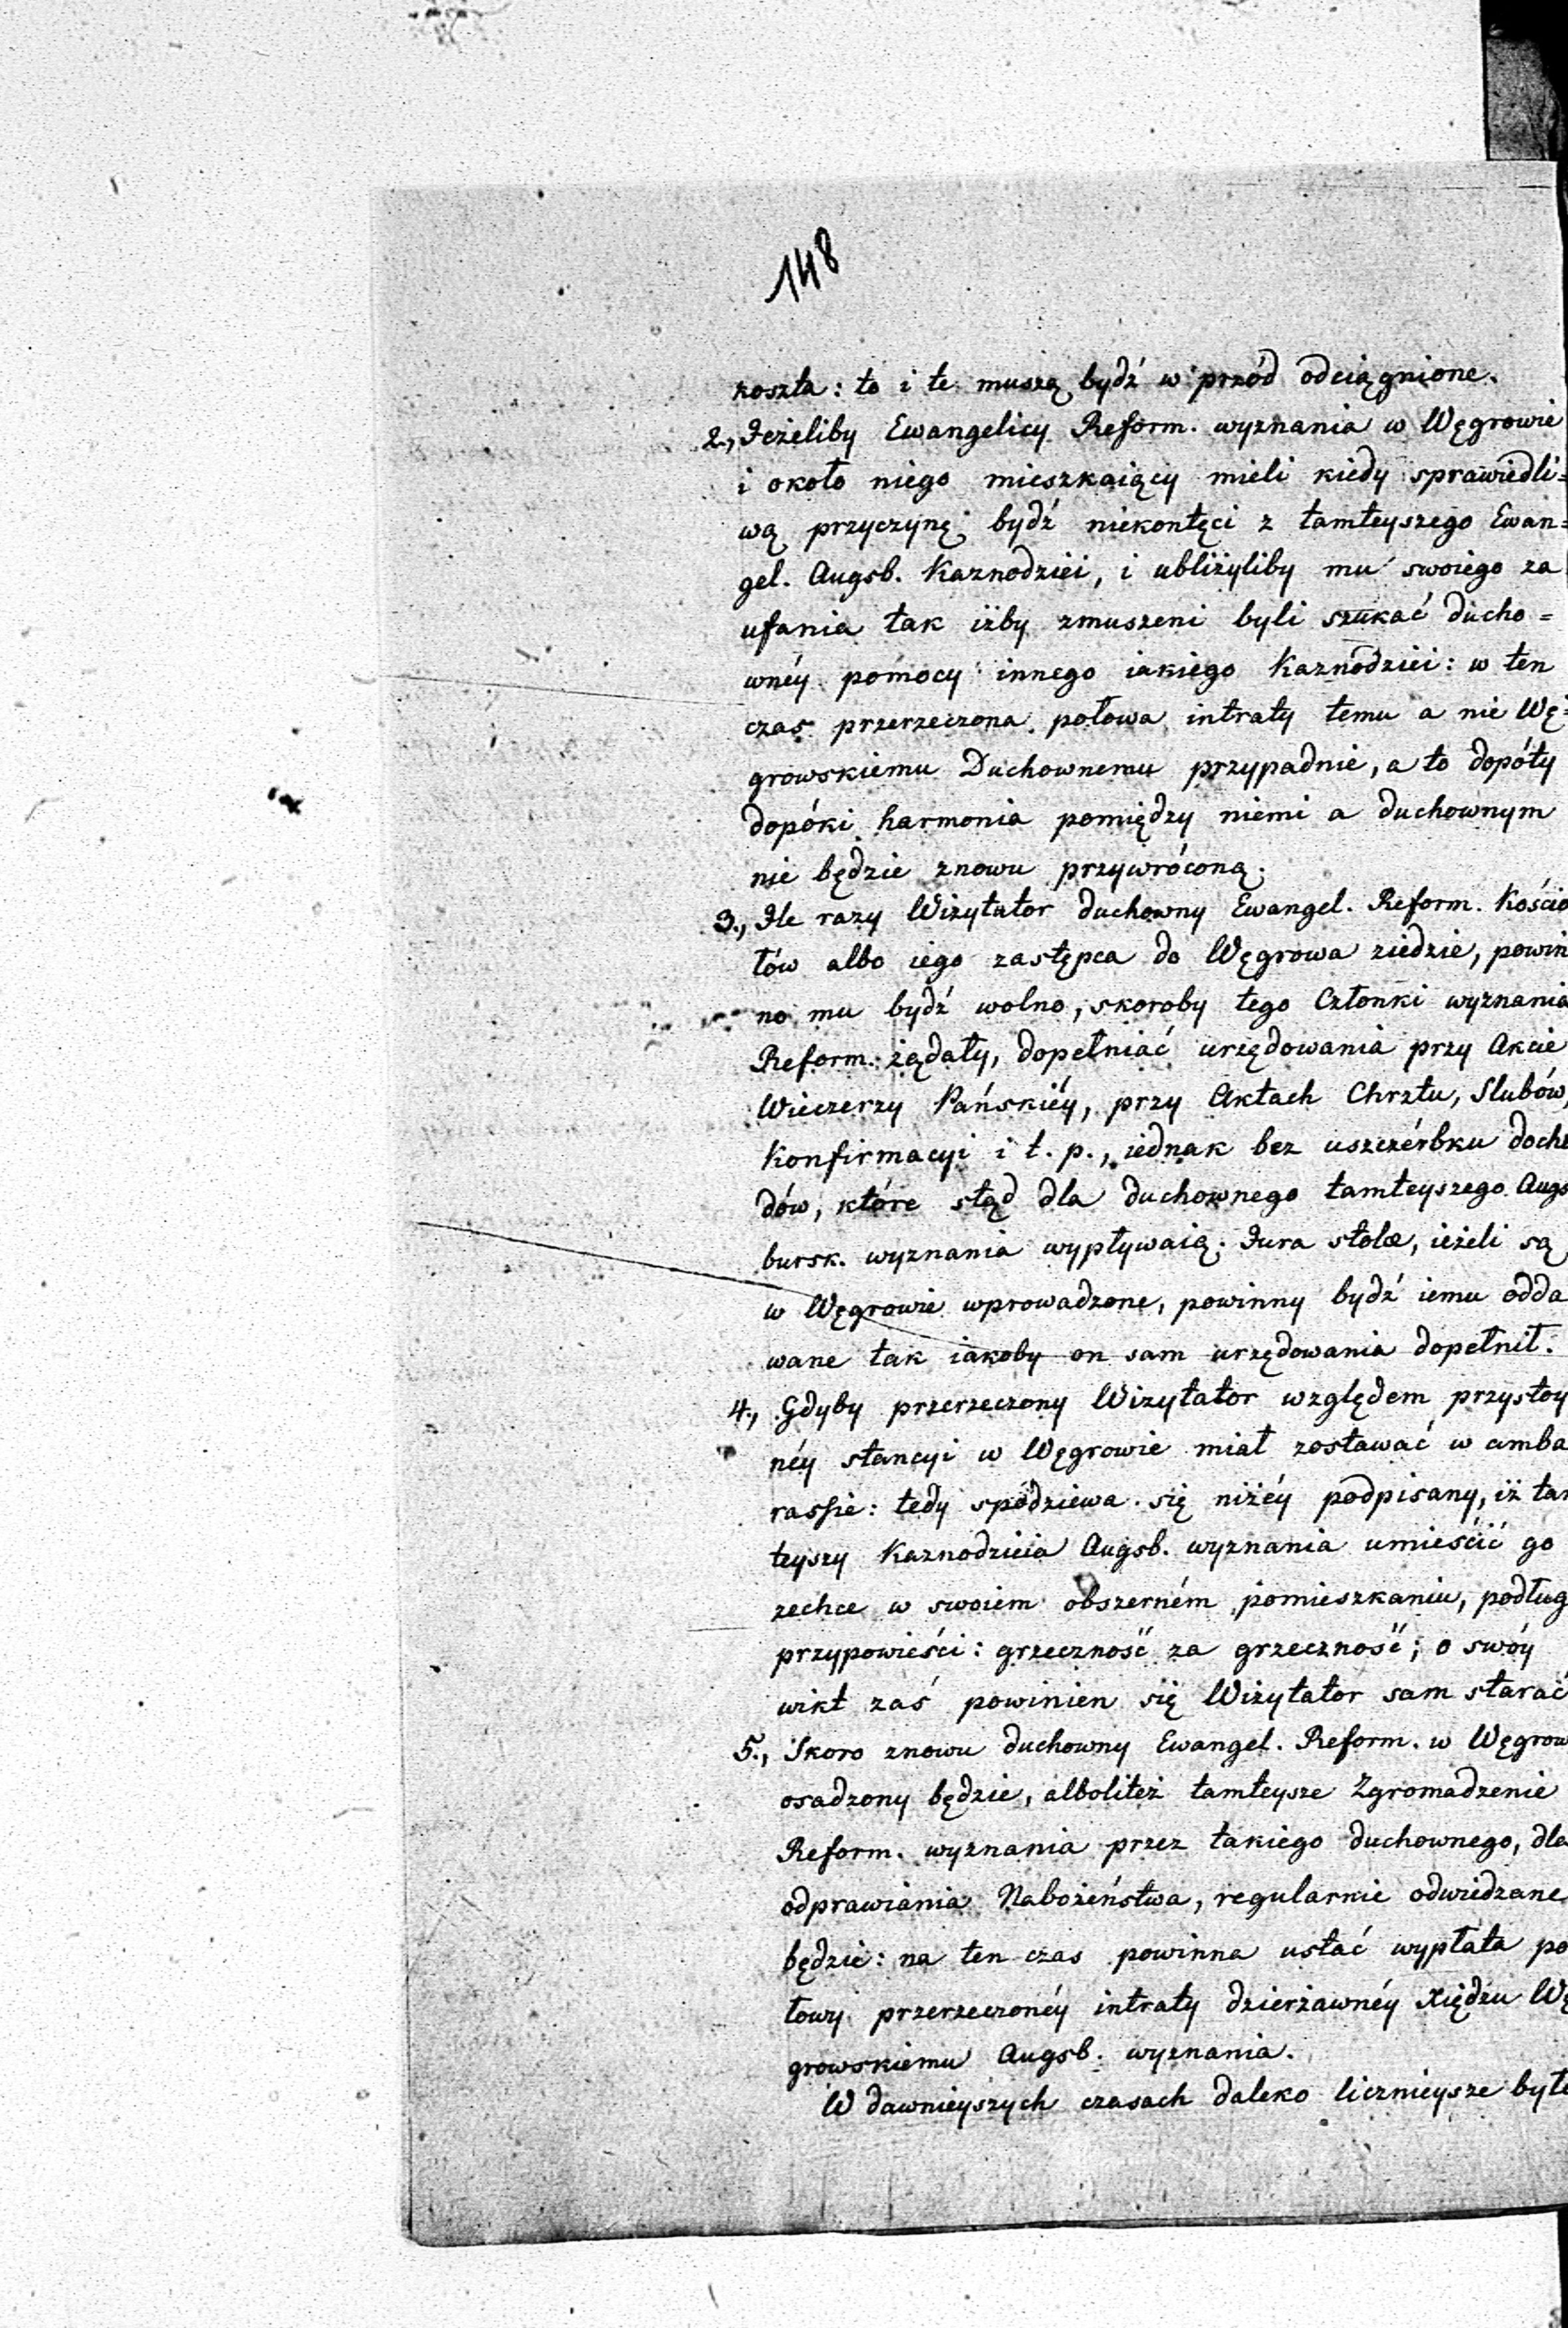 148
koszta: to i te muszą bydź w przód odciągnione.
2., Jeżeliby Ewangelicy Reform. wyznania w Węgrowie
i około niego mieszkaiący mieli kiedy sprawiedli=
wą przyczynę bydź niekontęci z tamteyszego Ewan=
gel. Augsb. Kaznodziei, i ubliżyliby mu swoiego za
ufania tak iżby zmuszeni byli szukać ducho=
wnéy pomocy innego iakiego Kaznodziei: w ten
czas przerzeczona połowa intraty temu a nie Wę=
growskiemu Duchownemu przypadnie, a to dopóty
dopóki harmonia pomiędzy niemi a duchownym
nie będzie znowu przywróconą.
3., Ile razy Wizytator duchowny Ewangel. Reform. Kościo
łów albo iego zastępca do Węgrowa ziedzie, powin
no mu bydź wolno, skoroby tego Członki wyznania
Reform. żądały, dopełniać urzędowania przy Akcie
Wieczerzy Pańskiéy, przy Aktach Chrztu, Slubów,
Konfirmacyi i t. p., iednak bez uszczérbku docho
dów, które stąd dla duchownego tamteyszego Augs
bursk. wyznania wypływaią. Jura stolæ, ieżeli są
w Węgrowie wprowadzone, powinny bydź iemu odda
wane tak iakoby on sam urzędowania dopełnił.
4., Gdyby przerzeczony Wizytator względem przystoy
néy stancyi w Węgrowie miał zostawać w amba
rassie: tedy spodziewa się niżéy podpisany, iż tam
teyszy Kaznodzieia Augsb. wyznania umieścić go
zechce w swoiem obszerném pomieszkaniu, podług
przypowieści: grzeczność za grzeczność; o swóy
wikt zaś powinien się Wizytator sam starać
5., Skoro znowu duchowny Ewangel. Reform. w Węgrow
osadzony będzie, albolitéż tamteysze Zgromadzenie
Reform. wyznania przez takiego duchownego, dla
odprawiania Nabożeństwa, regularnie odwiedzane
będzie: na ten czas powinna ustać wypłata po
łowy przerzeczonéy intraty dzierżawnéy Xiędzu Wę
growskiemu Augsb. wyznania.
W dawnieyszych czasach daleko licznieysze były